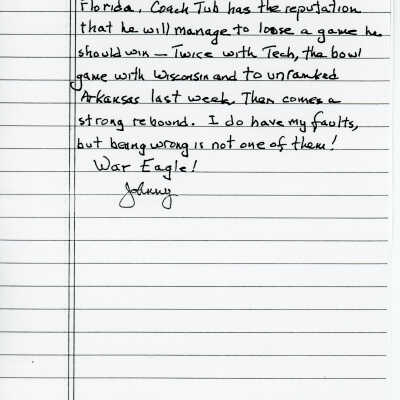 Florida. Coach Tub has the reputation
that he will manage to loose a game he
should win — Twice with Tech, the bowl
game with Wisconsin and to unranked
Arkansas last week. Then comes a
strong rebound. I do have my faults,
but being wrong is not one of them!
War Eagle!
Johnny